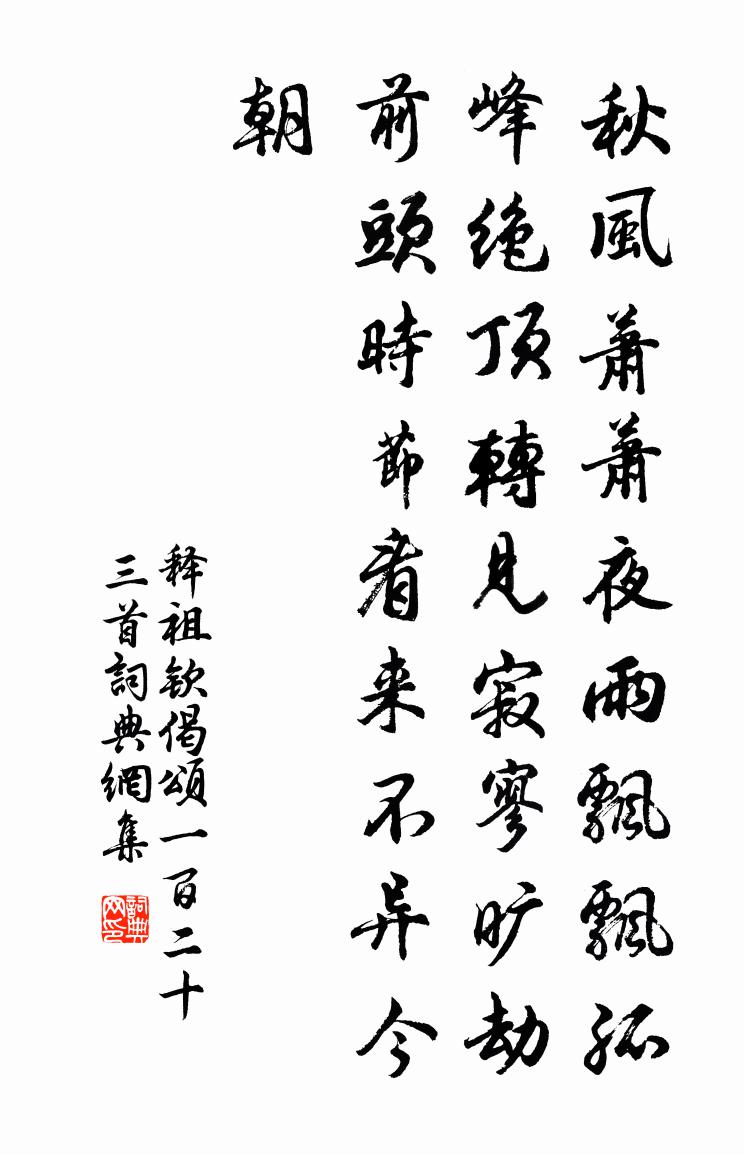 秋風蕭蕭夜雨飄飄孤
峰絶頂轉見寂寥旷劫
前頭時節看来不异今
朝
释祖钦偈頌一百二十
三首詞典網集
詞典
网印